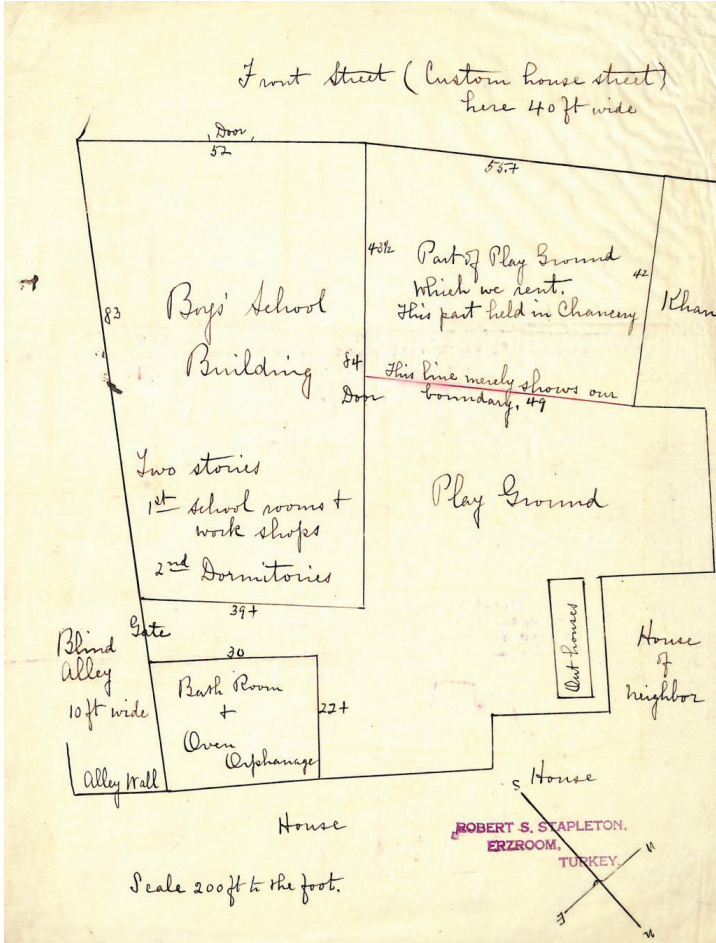 Front Street (Custom house street)
here 40 ft wide
Door
52
55+
43½
Part of Play Ground
which we rent.
This part held in Chancery
42
Khan
83
Boys' School
Building
84
Door
This line merely shows our
boundary, 49
Two stories
1st school rooms +
work shops
2nd Dormitories
Play Ground
39+
Gate
Blind
Alley
10 ft wide
30
Bath Room
+
Oven
Orphanage
22+
Out houses
House
of
neighbor
Alley Wall
House
House
S
N
E
ROBERT S. STAPLETON.
ERZROOM,
TURKEY.
Scale 200 ft to the foot.